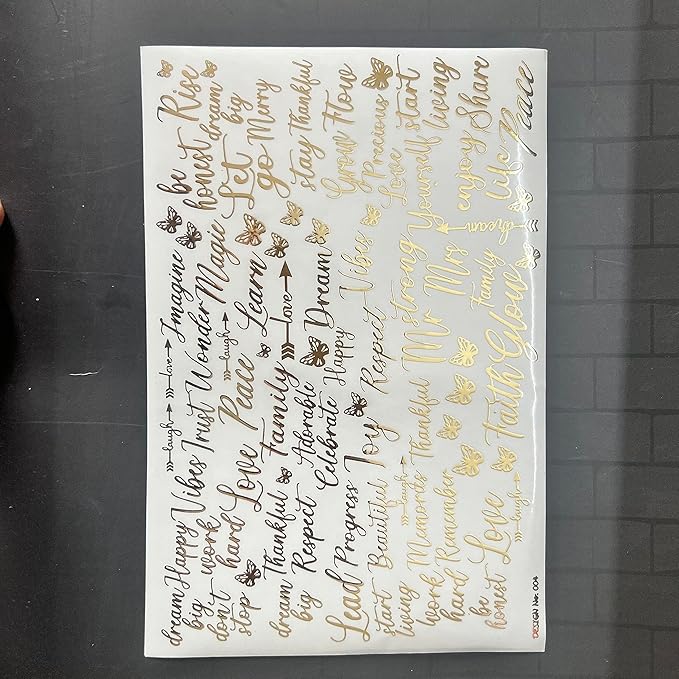 dream
big
Happy Vibes
laugh
love
Imagine
be
honest
Rise
dream
big
don't
stop
work
hard
Trust
Wonder
Magic
Let
go
Merry
Love
Peace
laugh
Learn
stay
Thankful
dream
big
Thankful
Family
love
Grow
Flow
Respect
Adorable
Dream
Precious
Lead
Progress
Celebrate
Happy
Vibes
Love
Yourself
start
living
start
living
Beautiful
Joy
Respect
strong
enjoy
Share
laugh
Mr
Mrs
life
Peace
work
hard
Memories
Thankful
Family
dream
Remember
be
honest
Love
laugh
Faith
Glow
DESIGN No. 004